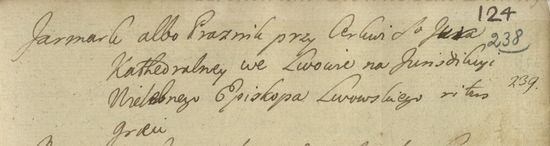 124
Jarmark albo Praznik przy Cerkwi So Jura 238
Kathedralney we Lwowie na Jurisdikcyi
Wielebnego Episkopa Lwowskiego ritus 239.
græci